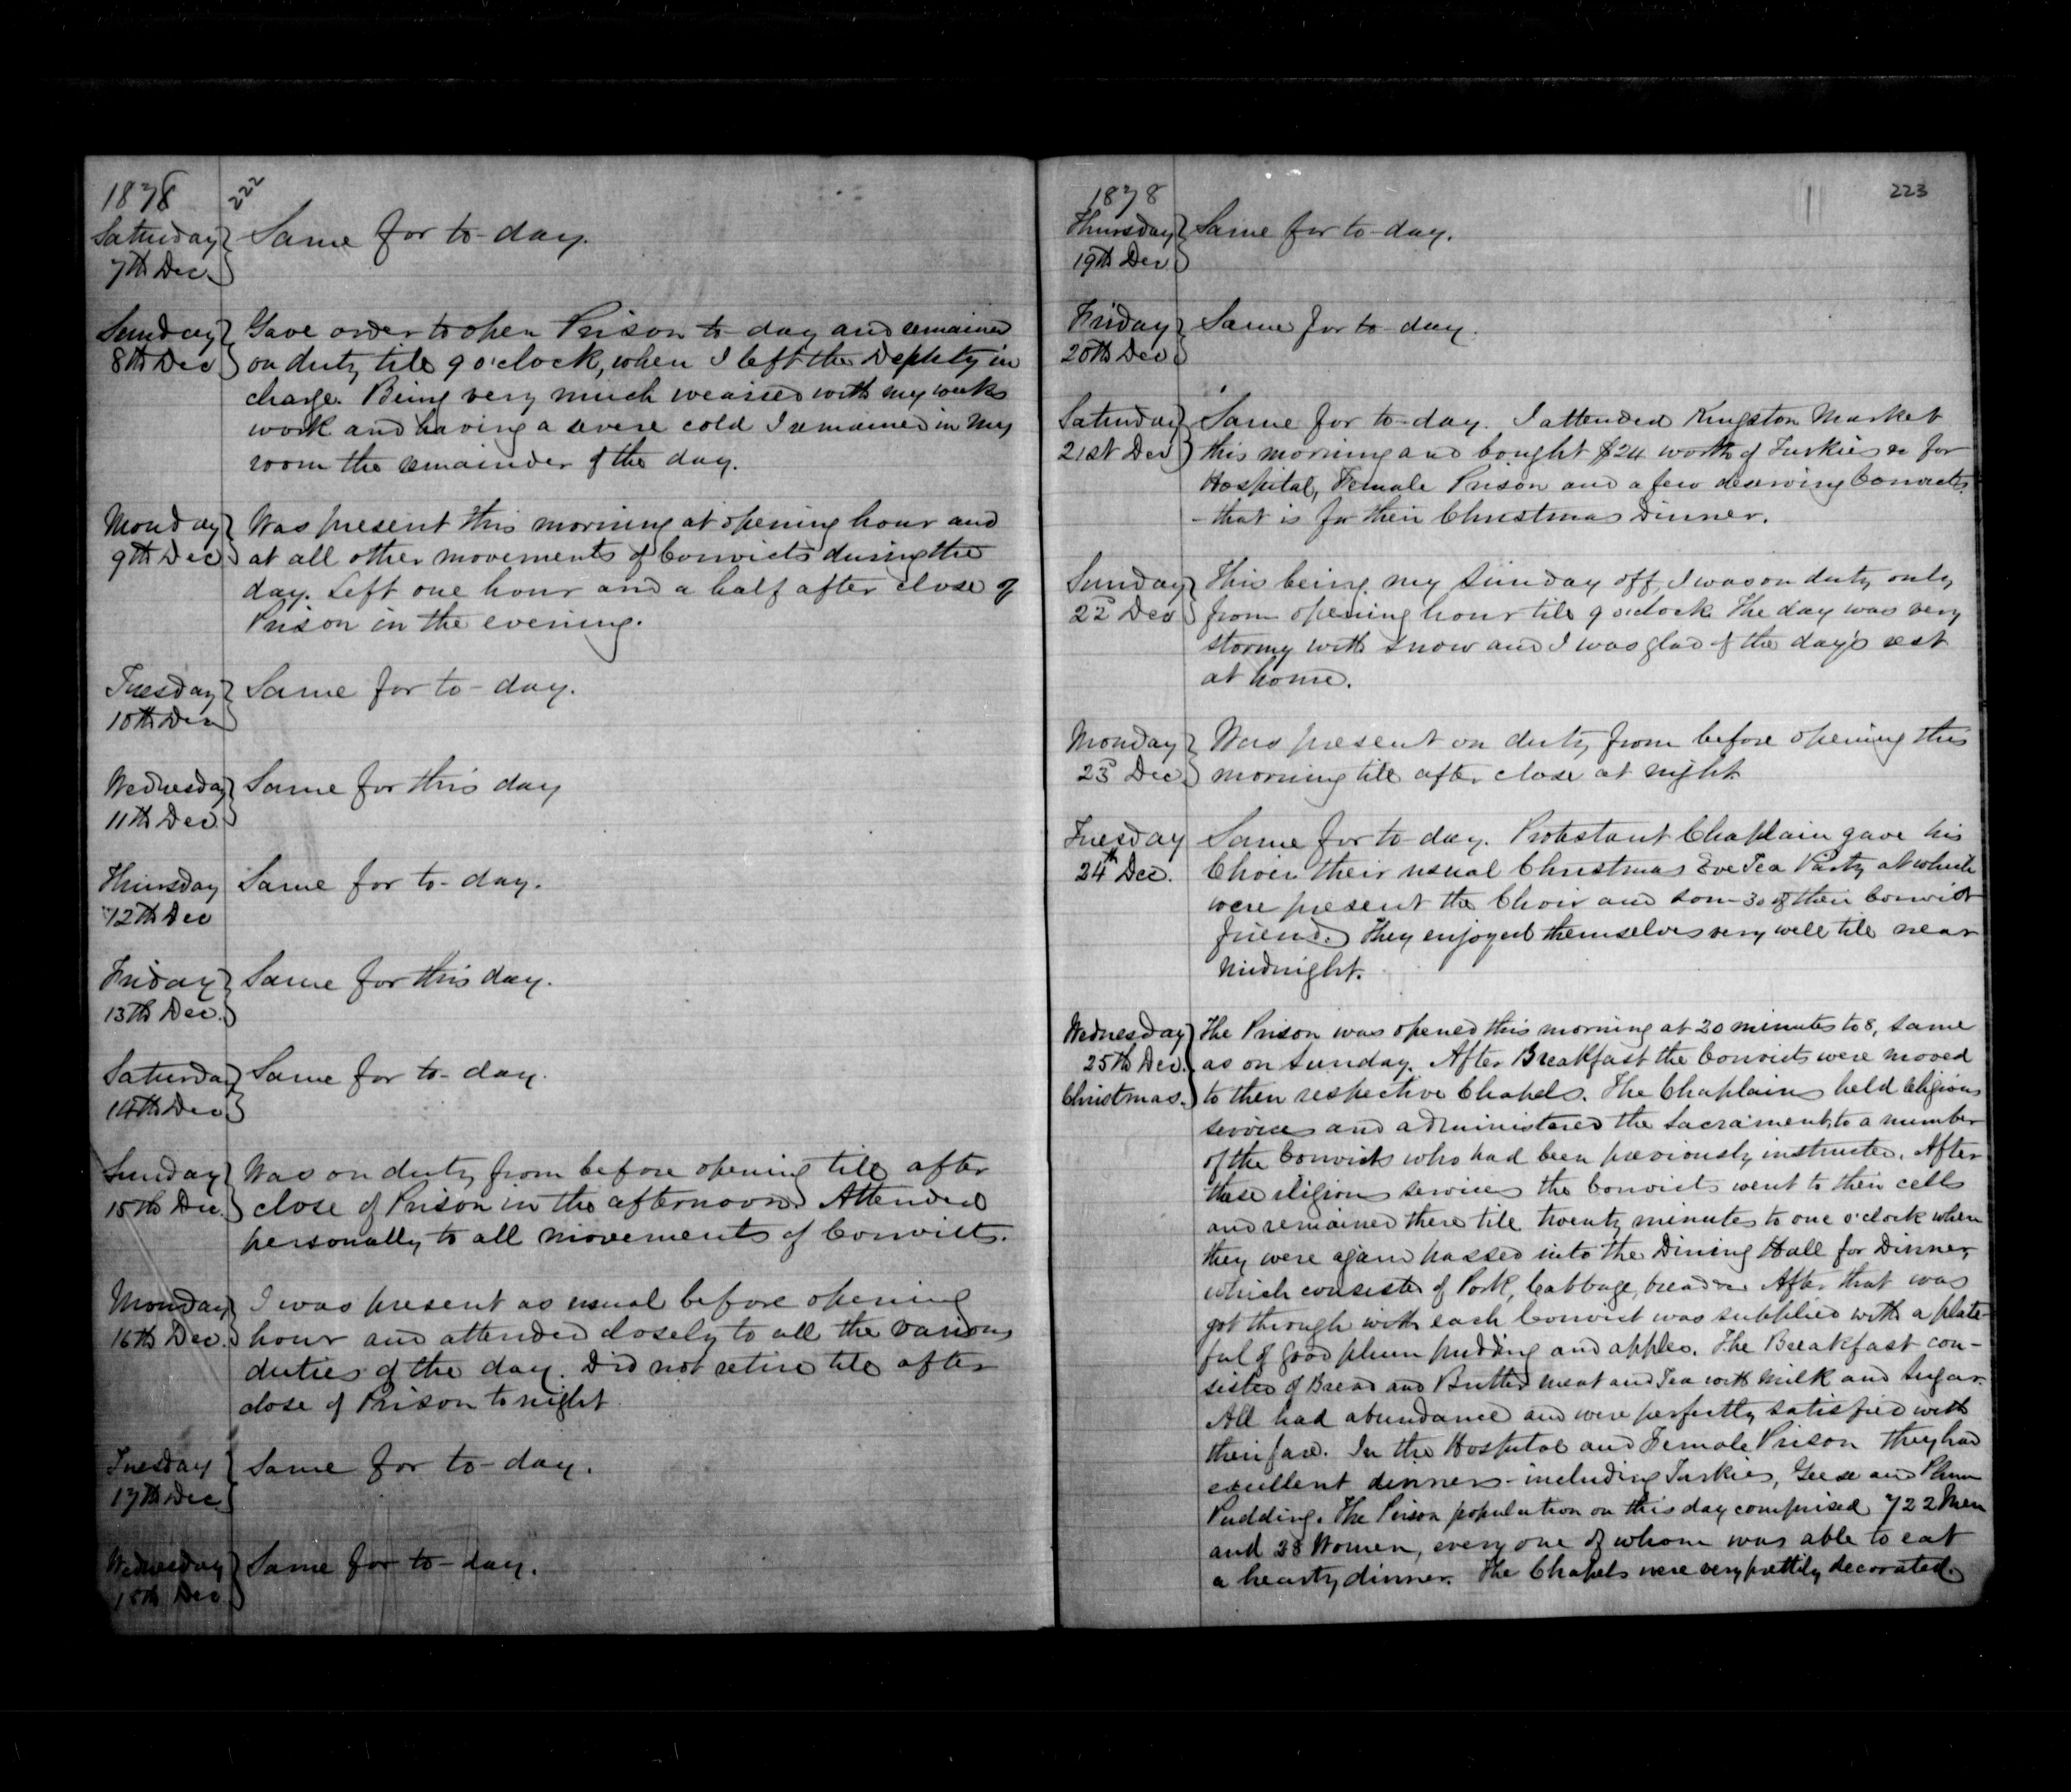 1878
222
Saturday
7th Dec
Same for to-day.
Sunday
8th Dec
Gave order to open Prison to-day and remained
on duty till 9 o'clock, when I left the Deputy in
charge. Being very much wearied with my weeks
work and having a severe cold I remained in my
room the remainder of the day.
Monday
9th Dec
Was present this morning at opening hour and
at all other movements of Convicts during the
day. Left one hour and a half after close of
Prison in the evening.
Tuesday
10th Dec
Same for to-day.
Wednesday
11th Dec.
Same for this day
Thursday
12th Dec
Same for to-day.
Friday
13th Dec.
Same for this day.
Saturday
14th Dec
Same for to-day.
Sunday
15th Dec.
Was on duty from before opening till after
close of Prison in the afternoon. Attended
personally to all movements of Convicts.
Monday
16th Dec.
I was present as usual before opening
hour and attended closely to all the various
duties of the day. Did not retire till after
close of Prison to night
Tuesday
17th Dec
Same for to-day.
Wednesday
18th Dec
Same for to-day.
1878
223
Thursday
19th Dec
Same for to-day.
Friday
20th Dec
Same for to-day.
Saturday
21st Dec
Same for to-day. I attended Kingston Market
this morning and bought $24 worth of Turkies &c for
Hospital, Female Prison and a few deserving Convicts
- that is for their Christmas Dinner.
Sunday
22d Dec
This being my Sunday off, I was on duty only
from opening hour till 9 o'clock. The day was very
stormy with snow and I was glad of the day's rest
at home.
Monday
23d Dec.
Was present on duty from before opening this
morning till after close at night
Tuesday
24th Dec.
Same for to-day. Protestant Chaplain gave his
Choir their usual Christmas Eve Tea Party at which
were present the Choir and som- 30 of their Convict
friends. They enjoyed themselves very well till near
Midnight.
Wednesday
25th Dec.
Christmas.
The Prison was opened this morning at 20 minutes to 8, same
as on Sunday. After Breakfast the Convicts were moved
to their respective Chapels. The Chaplains held religious
services and administered the Sacrament to a number
of the Convicts who had been previously instructed. After
these religious services the Convicts went to their cells
and remained there till twenty minutes to one o'clock when
they were again passed into the Dining Hall for Dinner,
which consisted of Pork, Cabbage, bread &c. After that was
got through with each Convict was supplied with a plate
ful of good plum pudding and apples. The Breakfast con-
sisted of Bread and Butter meat and Tea with Milk and Sugar.
All had abundance and were perfectly satisfied with
their fare. In the Hospital and Female Prison they had
excellent dinners - including Turkies, Geese and Plum
Pudding. The Prison population on this day comprised 722 Men
and 28 Women, every one of whom was able to eat
a hearty dinner. The Chapels were very prettily decorated.